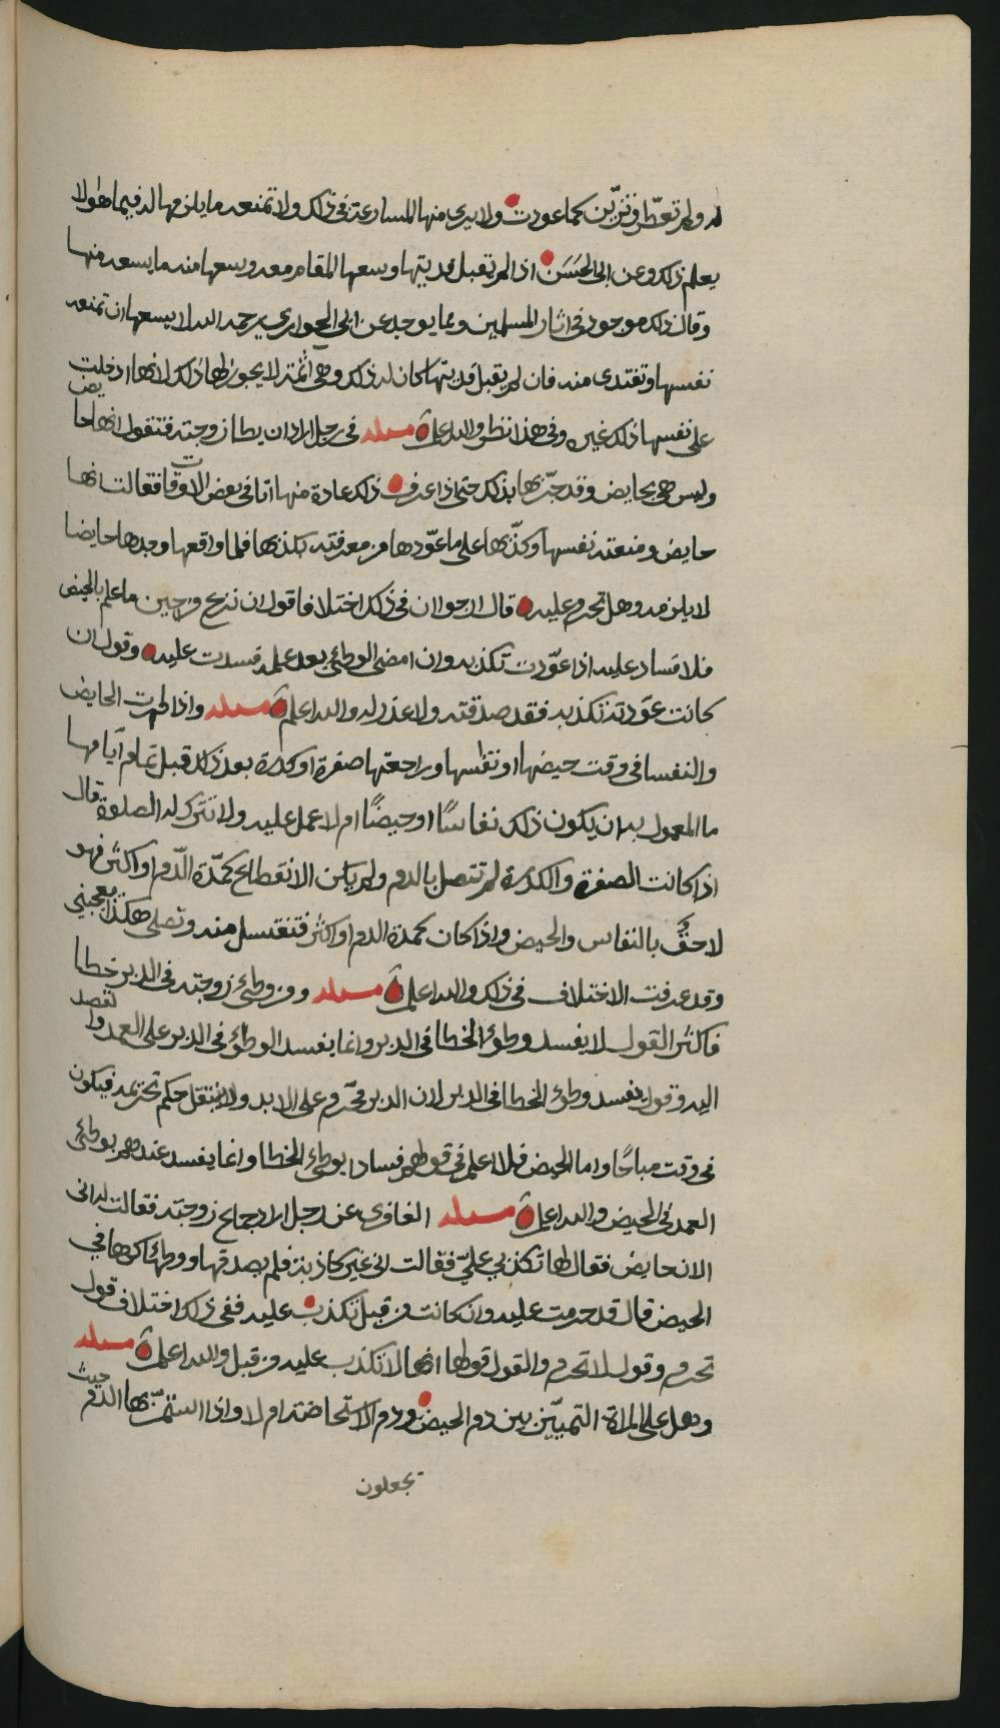 له ولم تعطر وتزين كما عودت ولا يرى منها المسارعة في ذلك ولا تمنعه ما يلزمها له فيما طولا
يعلم ذلك وعن ابي الحسن اذا لم تقبل فديتها وسعها المقام معه وسعها منه ما يسعه منها
وقال ذلك موجود في اثار المسلمين ومما يوجد عن ابي الحواري رحمه الله لا يسعها ان تمنعه
نفسها وتفتدى منه فان لم يقبل فديتها كان له ذلك وهي اثمة لا يجوز لها ذلك لانها ادخلت
على نفسها ذلك غيره وفي هذا نظر والله اعلم مسئله في رجل اراد ان يطا زوجته فتقول انها حايض
وليس هي بحايض وقد جربها بذلك حتى اذا عرف ذلك عادة منها اتا في بعض الاوقات فقالت انها
حايض ومنعته نفسها وكذبها على ما عودها من معرفته بكذبها فلما واقعها وجدها حايضا
لا يلزمه وهل تحرم عليه قال ارجوا ان في ذلك اختلافا قول ان نزع من حين ما علم بالحيض
فلا فساد عليه اذا عودت تكذبه وان امضى الوطئ بعد علمه فسدت عليه وقول ان
كانت عودته تكذبه فقد صدقته ولا عذر له والله اعلم مسئله واذا طهرت الحايض
والنفسا في وقت حيضها او نفاسها وراجعتها صفرة او كدرة بعد ذلك قبل تمام ايامها
ما المعمول به ان يكون ذلك نفاسًا او حيضًا ام لا عمل عليه ولا تترك له الصلوة قال
اذا كانت الصفرة والكدرة لم تتصل بالدم ولم يكن الانقطاع كمدّة الدّم او اكثر فهو
لاحق بالنفاس والحيض واذا كان كمدة الدم او اكثر فتغتسل منه وتصلي هكذا يعجبني
وقد عرفت الاختلاف في ذلك والله اعلم مسئله ومن وطئ زوجته في الدبر خطا
فاكثر القول لا يفسد وطؤ الخطا في الدبر وانما يفسد الوطؤ في الدبر على العمد والقصد
اليه وقول يفسد وطئ الخطا في الدبر لان الدبر محرّم على الابد ولا ينتقل حكم تحريمه فيكون
في وقت مباحًا واما الحيض فلا اعلم في قولهم فسادا بوطئ الخطا وانما يفسد عندهم بوطئ
العمد في الحيض والله اعلم مسئله الغافري عن رجل اراد جماع زوجته فقالت له اني
الان حايض فقال لها تكذبي عليّ فقالت اني غير كاذبة فلم يصدقها ووطئها كرها في
الحيض قال قد حرمت عليه وان كانت من قبل تكذب عليه ففي ذلك اختلاف قول
تحرم وقول لا تحرم والقول قولها انها لا تكذب عليه من قبل والله اعلم مسئله
وهل على المراة التمييّز بين دم الحيض ودم الاستحاضة ام لا واذا استمرّ بها الدّم حيث
تجعلون